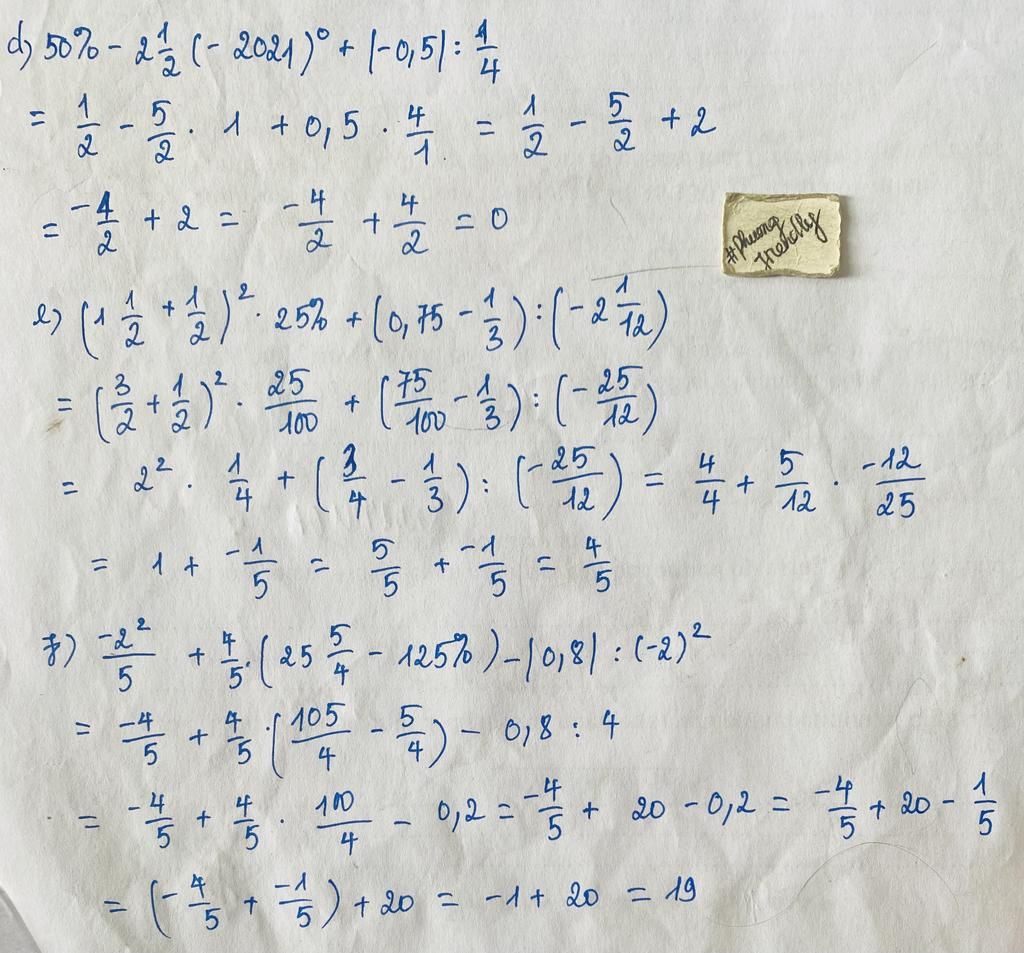 d) 50% - 2 1/2 (-2021)⁰ + |-0,5| : 1/4
= 1/2 - 5/2 . 1 + 0,5 . 4/1 = 1/2 - 5/2 + 2
= -4/2 + 2 = -4/2 + 4/2 = 0
#Phuong
friendly
e) (1 1/2 + 1/2)² . 25% + (0,75 - 1/3) : (-2 1/12)
= (3/2 + 1/2)² . 25/100 + (75/100 - 1/3) : (-25/12)
= 2² . 1/4 + (3/4 - 1/3) : (-25/12) = 4/4 + 5/12 . -12/25
= 1 + -1/5 = 5/5 + -1/5 = 4/5
f) -2²/5 + 4/5 . (25 5/4 - 125%) - |0,8| : (-2)²
= -4/5 + 4/5 . (105/4 - 5/4) - 0,8 : 4
= -4/5 + 4/5 . 100/4 - 0,2 = -4/5 + 20 - 0,2 = -4/5 + 20 - 1/5
= (-4/5 + -1/5) + 20 = -1 + 20 = 19